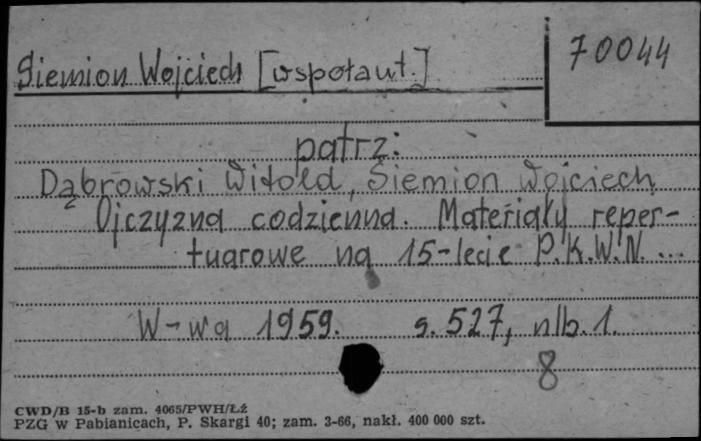 70044
Siemion Wojciech [współaut.]
patrz:
Dąbrowski Witold, Siemion Wojciech
Ojczyzna codzienna. Materiały reper-
tuarowe na 15-lecie P.K.W.N. ...
W-wa 1959. s. 527, nlb. 1.
8
CWD/B 15-b zam. 4065/PWH/Łź
PZG w Pabianicach, P. Skargi 40; zam. 3-66, nakł. 400 000 szt.